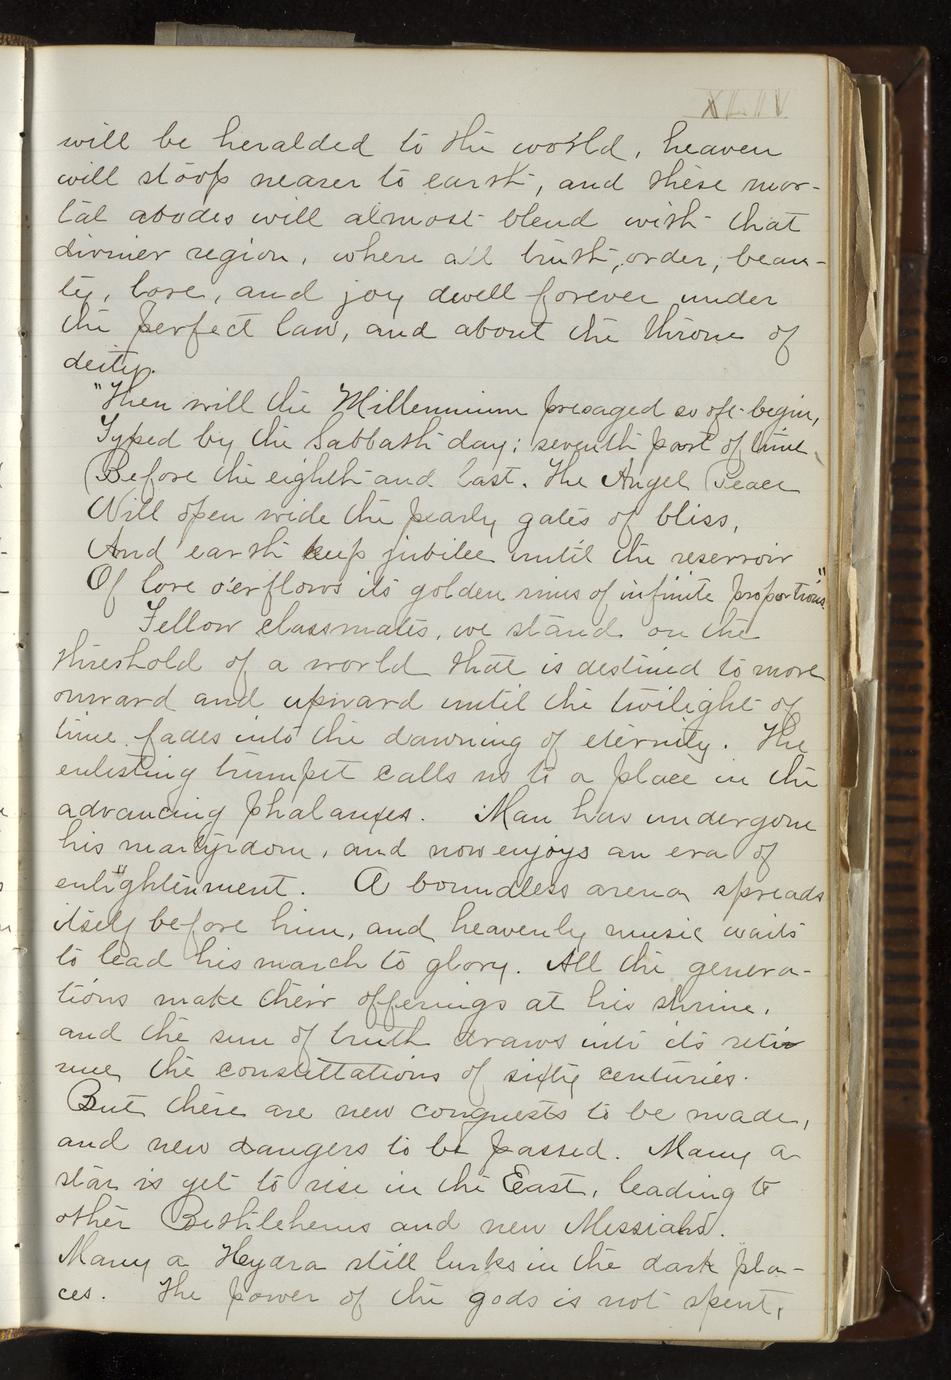 will be heralded to the world, heaven
will stoop nearer to earth, and these mor-
tal abodes will almost blend with that
diviner region, where all truth, order, beau-
ty, love, and joy dwell forever under
the perfect law, and about the throne of
deity.
"Then will the Millennium presaged so oft begin,
Typed by the Sabbath day; seventh part of time
Before the eighth and last. The Angel Peace
Will open wide the pearly gates of bliss,
And earth keep jubilee until the reservoir
Of love o'erflows its golden rims of infinite proportions"
Fellow classmates, we stand on the
threshold of a world that is destined to move
onward and upward until the twilight of
time fades into the dawning of eternity. The
enlisting trumpet calls us to a place in the
advancing phalanxes. Man has undergone
his martyrdom, and now enjoys an era of
enlightenment. A boundless arena spreads
itself before him, and heavenly music waits
to lead his march to glory. All the genera-
tions make their offerings at his shrine,
and the sun of truth draws into its reti-
nue the constellations of sixty centuries.
But there are new conquests to be made,
and new dangers to be passed. Many a
star is yet to rise in the East, leading to
other Bethlehems and new Messiahs.
Many a Hydra still lurks in the dark pla-
ces. The power of the gods is not spent,